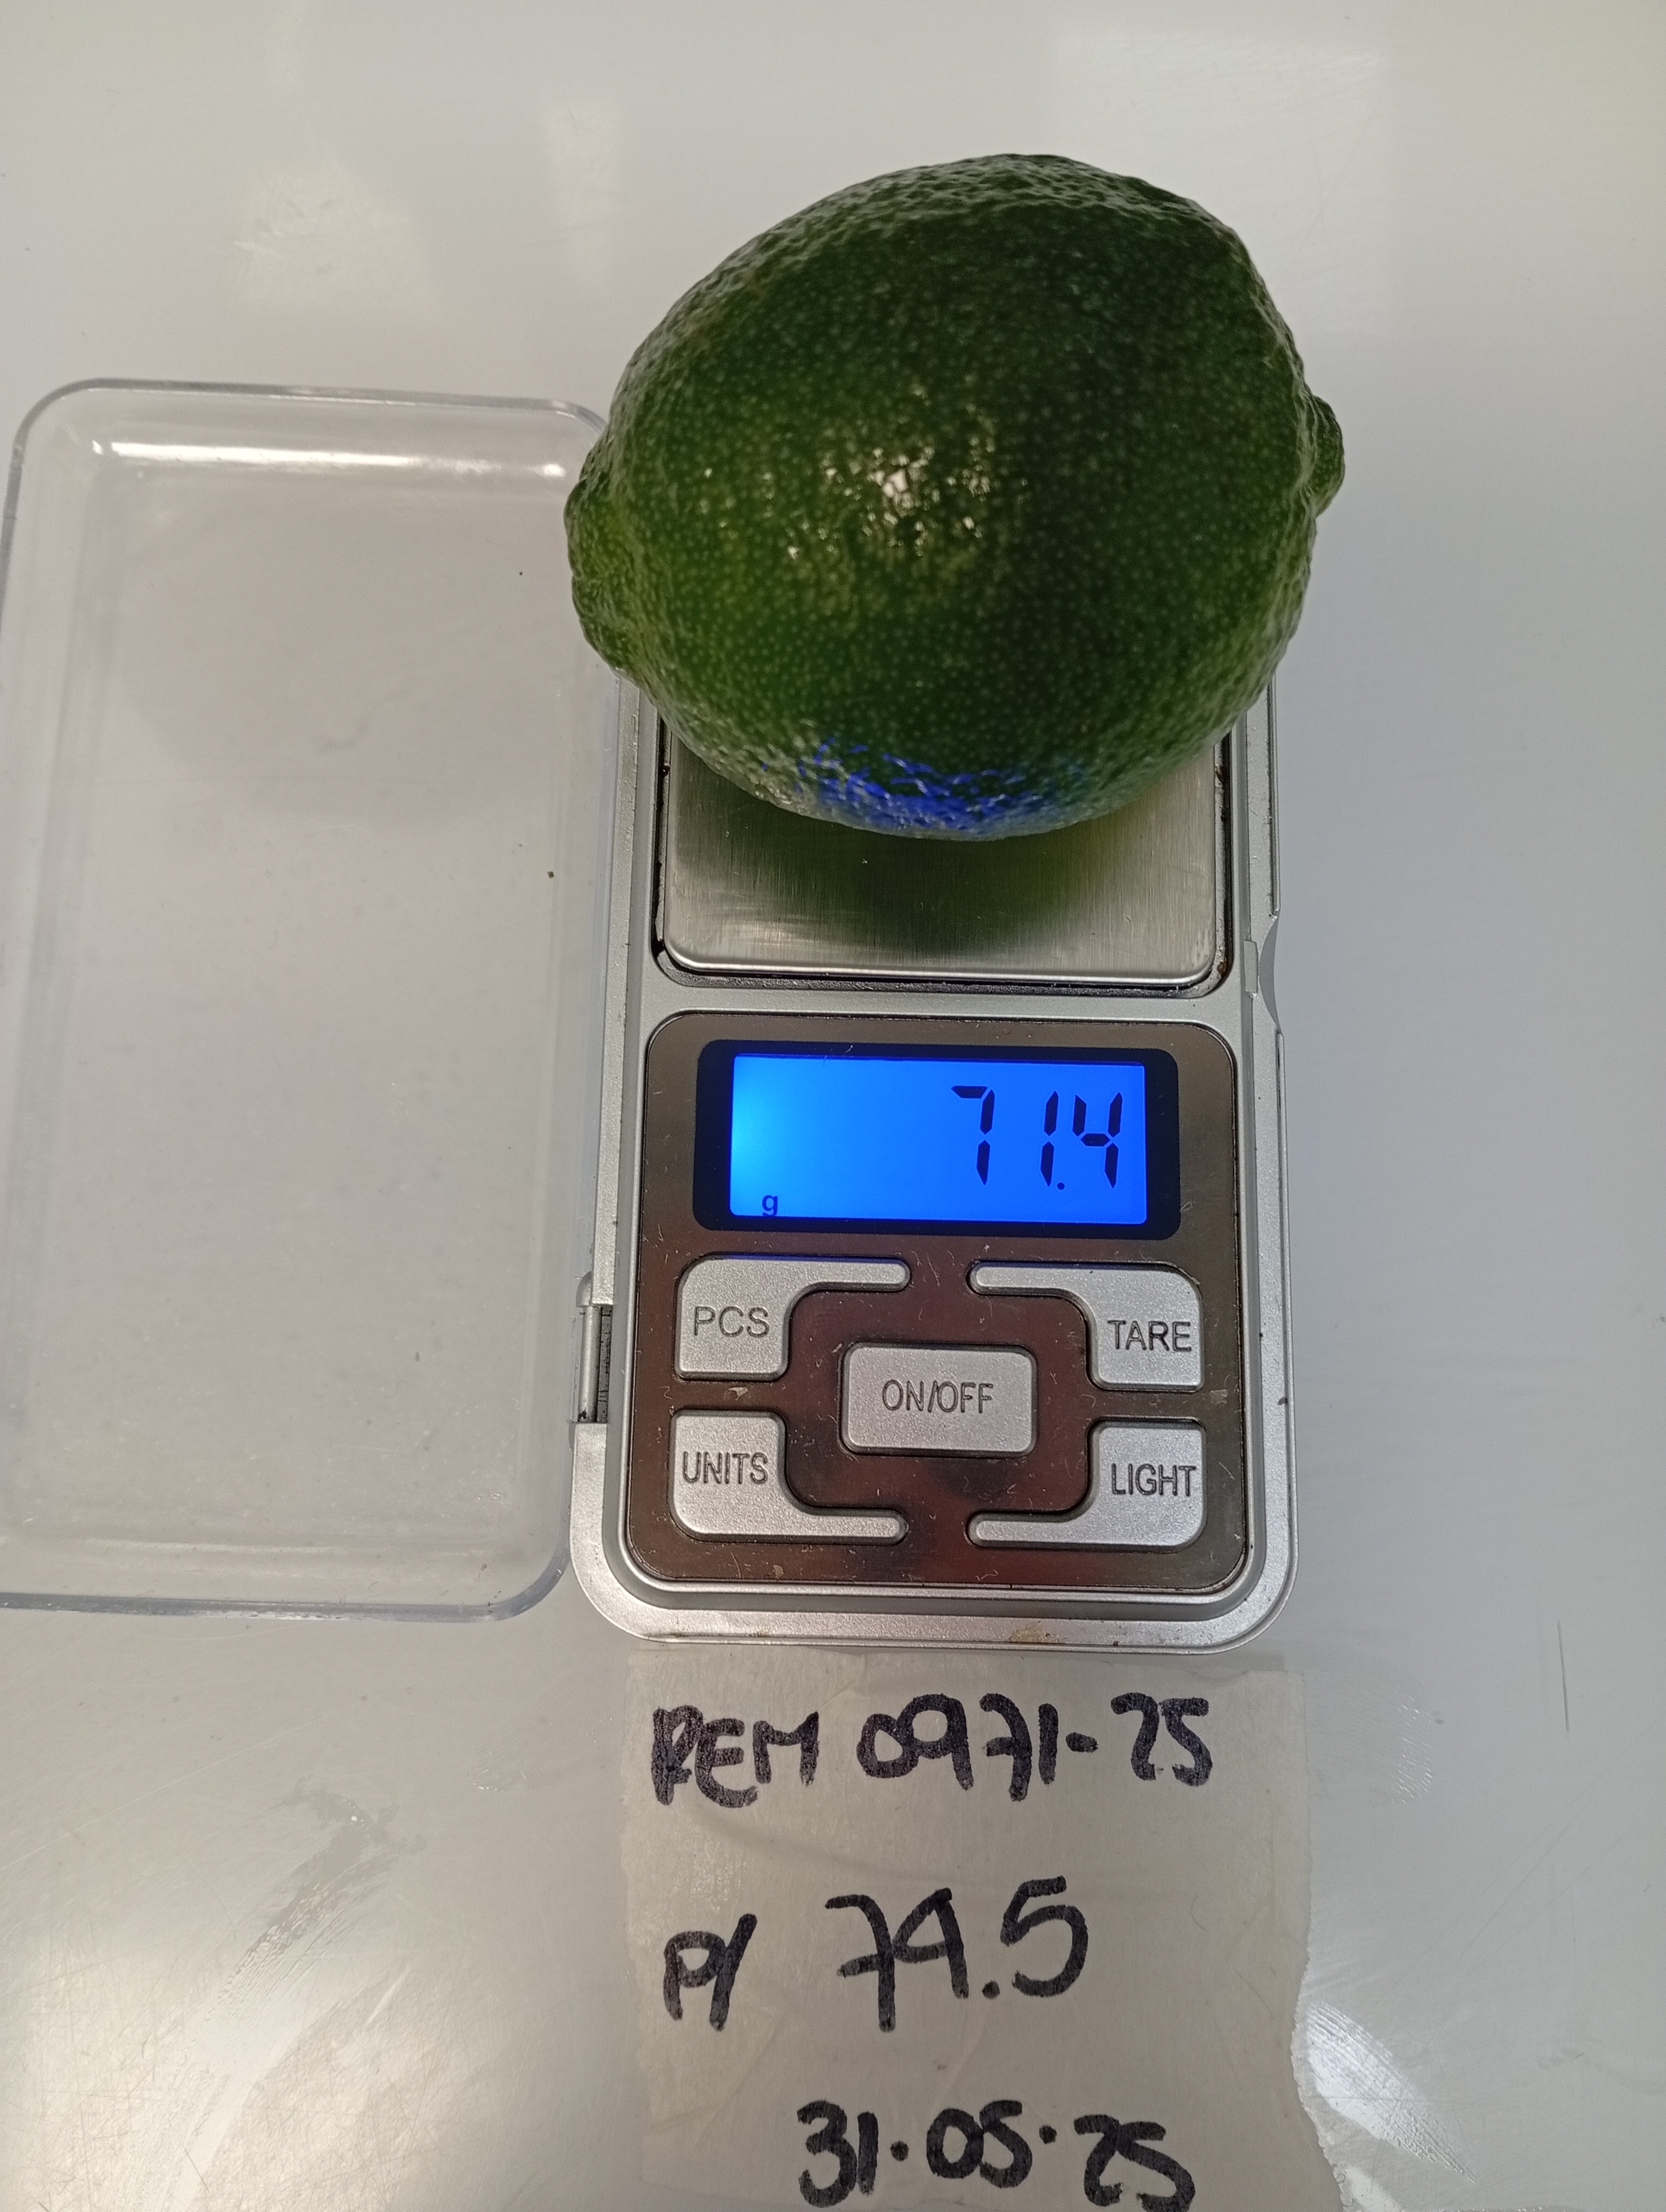 71.4
g
PCS
TARE
ON/OFF
UNITS
LIGHT
REM 0971-25
P/ 74.5
31.05.25